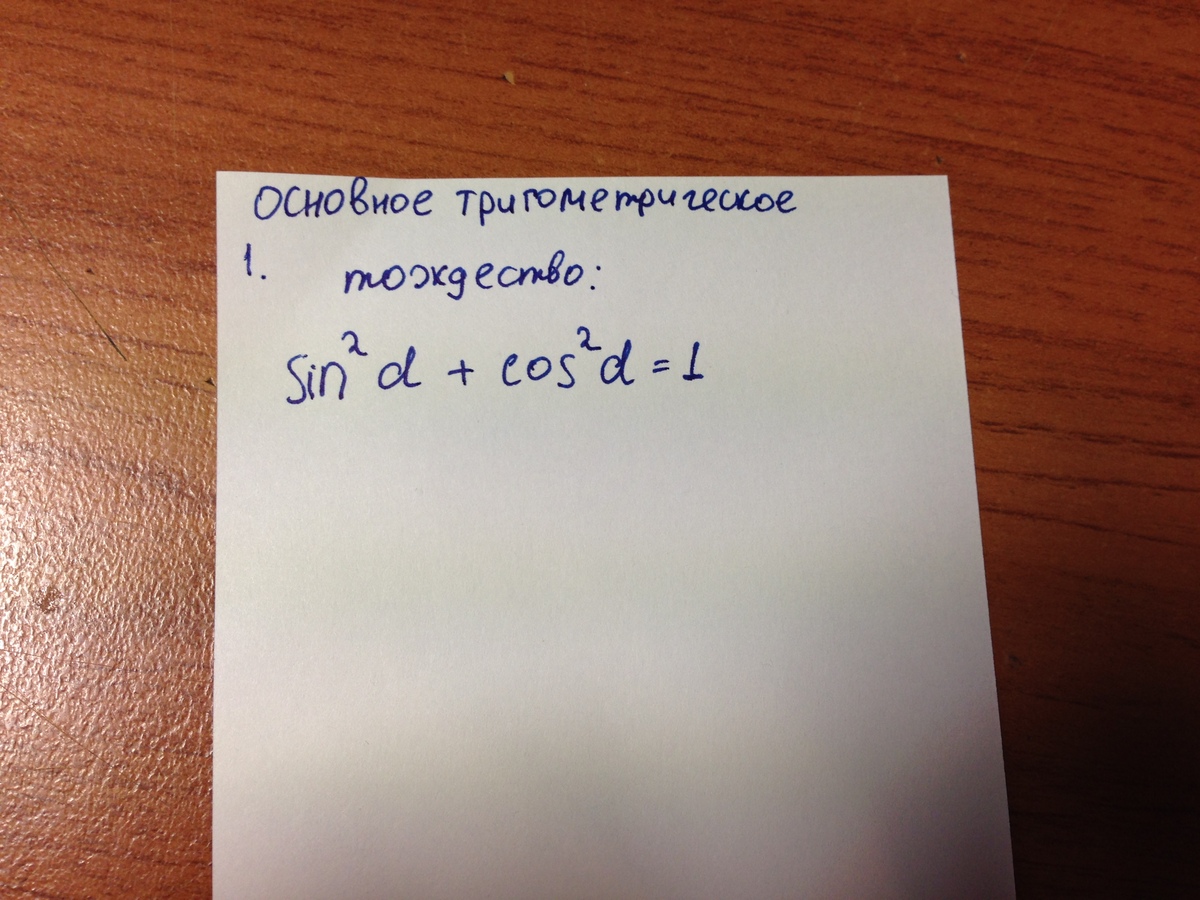 основное тригометрическое
1. тождество:
sin²α + cos²α = 1